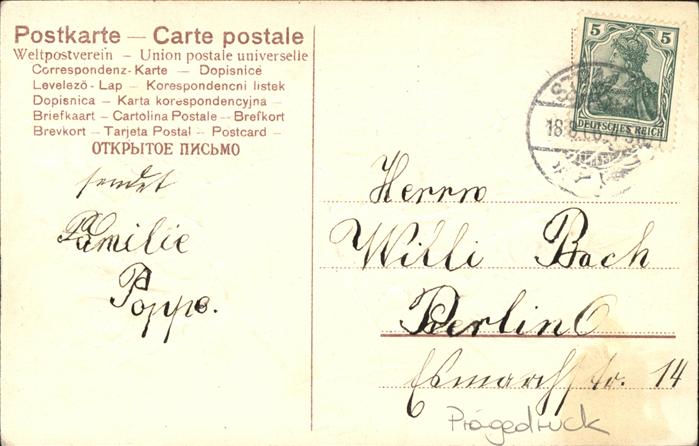 Postkarte — Carte postale
Weltpostverein – Union postale universelle
Correspondenz-Karte – Dopisnice
Levelező-Lap – Korespondencni listek
Dopisnica – Karta korespondencyjna –
Briefkaart – Cartolina Postale – Brefkort
Brevkort – Tarjeta Postal – Postcard –
ОТКРЫТОЕ ПИСЬМО
sendet
Familie
Poppe.
5 5
DEUTSCHES REICH
Herrn
Willi Bach
Berlin O
Esmarchstr. 14
Prägedruck